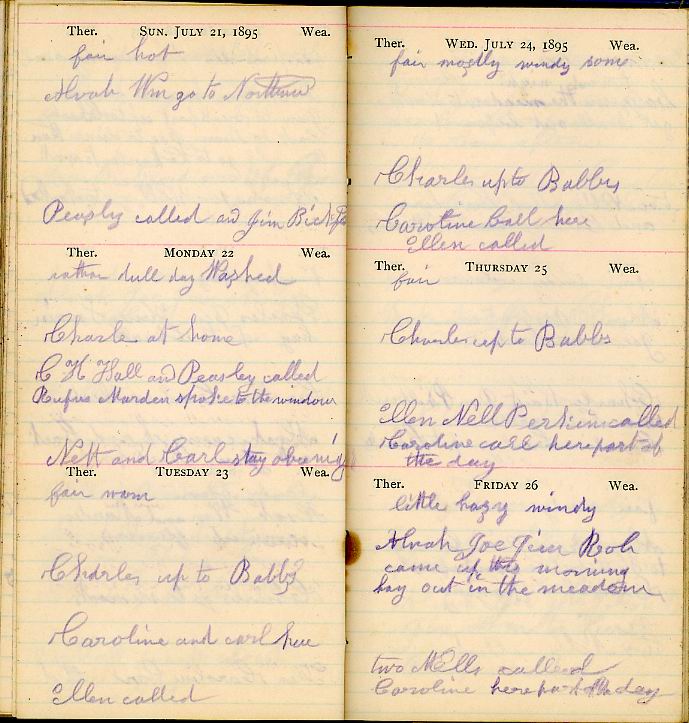 Ther. SUN. JULY 21, 1895 Wea.
fair hot
Alvah Wm go to
Peasly called and Jim
Ther. MONDAY 22 Wea.
rather dull day Washed
Charle at home
C H Hall and Peasley called
Rufus Marden spoke to the window
Nett and Carl stay
Ther. TUESDAY 23 Wea.
fair warm
Charles up to Babbs
Caroline and carl here
Ellen called
Ther. WED. JULY 24, 1895 Wea.
fair mostly windy some
Charles up to Babbs
Caroline Carl here
Ellen called
Ther. THURSDAY 25 Wea.
fair
Charles up to Babbs
Ellen Nell Perkins called
Caroline carl here part of
the day
Ther. FRIDAY 26 Wea.
little hazy windy
Alvah Joe Jim Rob
came up this morning
hay out in the meadow
two called
Caroline here part of the day